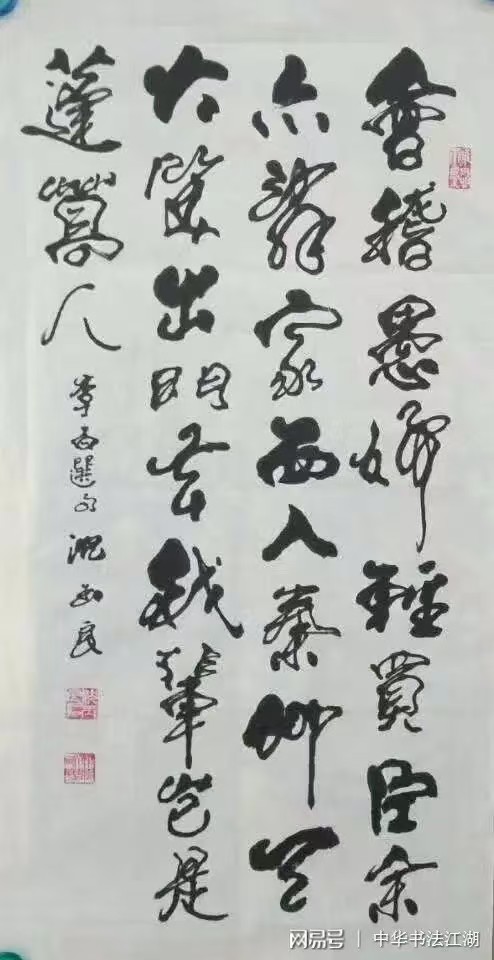 會稽愚婦輕買臣余
亦辭家西入秦仰天
大笑出門去我輩豈是
蓬蒿人
李白選句
网易号 | 中华书法江湖